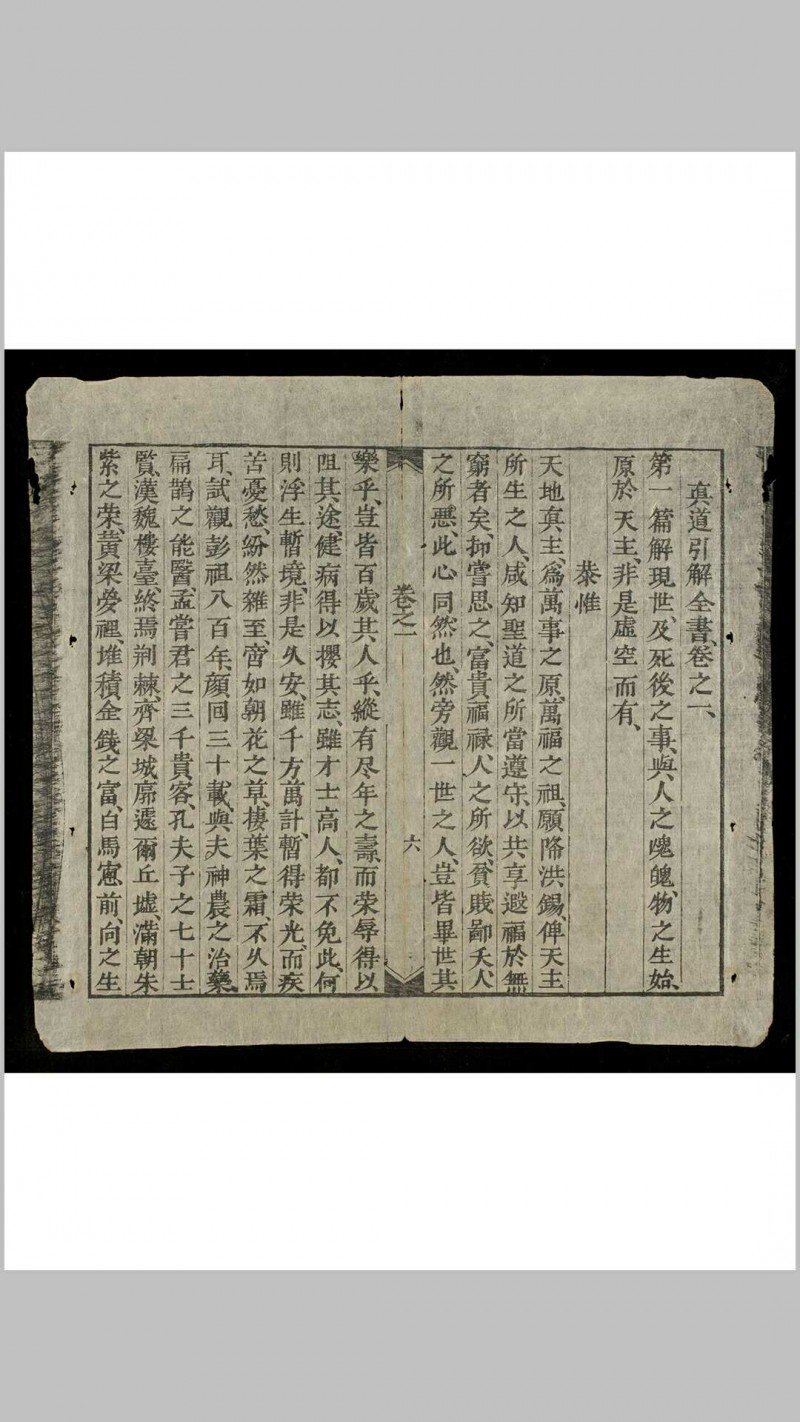 真道引解全書、卷之一、
第一篇解現世、及死後之事、與人之魂魄、物之生始、
原於天主、非是虛空而有、
恭惟
天地真主、為萬事之原、萬福之祖、願降洪錫、俾天主
所生之人、咸知聖道之所當遵守、以共享遐福於無
窮者矣、抑嘗思之、富貴福禄、人之所欲、貧賎鄙夭、人
之所惡、此心同然也、然旁觀一世之人、豈皆畢世其
卷之一 六
樂乎、豈皆百歲其人乎、縱有尽年之壽、而荣辱得以
阻其途、健病得以攖其志、雖才士高人、都不免此、何
則浮生暫境、非是久安、雖千方萬計、暫得荣光、而疾
苦憂愁、紛然雜至、啻如朝花之草、棲葉之霜、不久焉
耳、試觀彭祖八百年、顔回三十載、與夫神農之治藥、
扁鵲之能醫、孟嘗君之三千貴客、孔夫子之七十士
賢、漢魏樓臺、終焉荆棘、齊梁城廓、遽爾丘墟、滿朝朱
紫之荣、黄梁夢裡、堆積金錢之富、白馬窻前、向之生